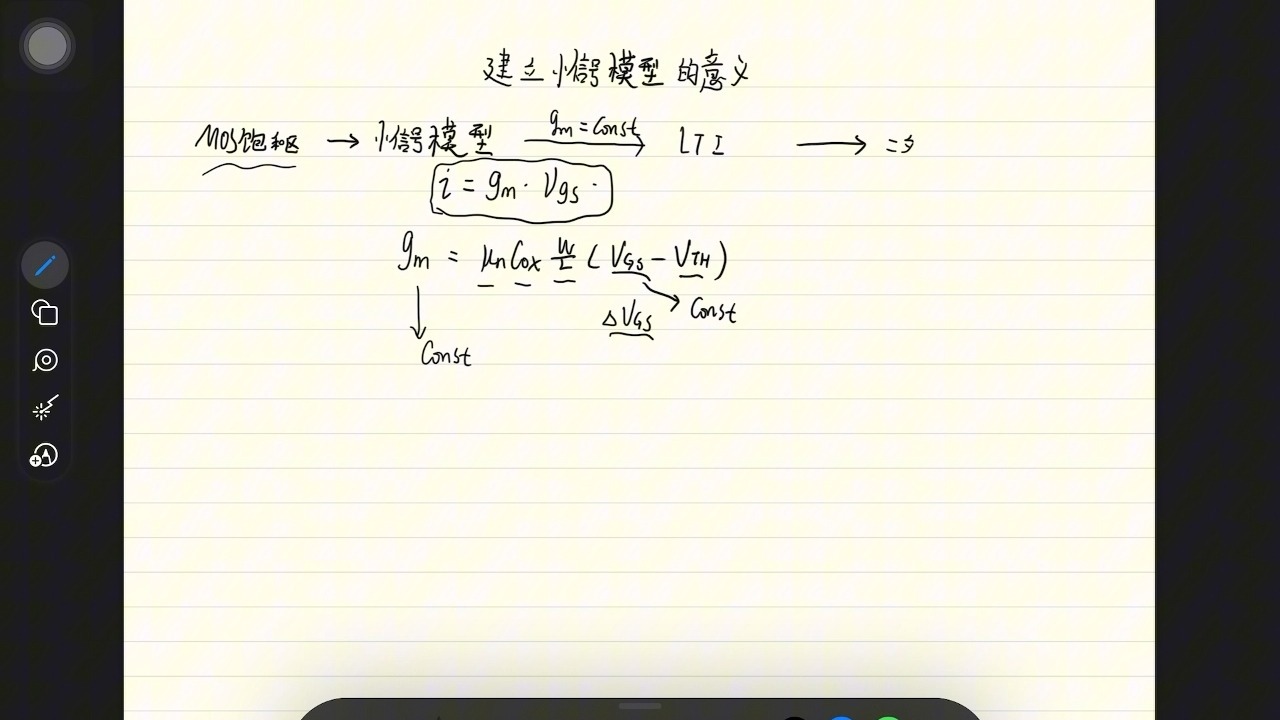 建立小信号模型的意义
MOS饱和区 → 小信号模型 gm = Const → LTI →
i = gm · Vgs ·
gm = μn Cox W/L (VGS - VTH)
ΔVGS Const
Const